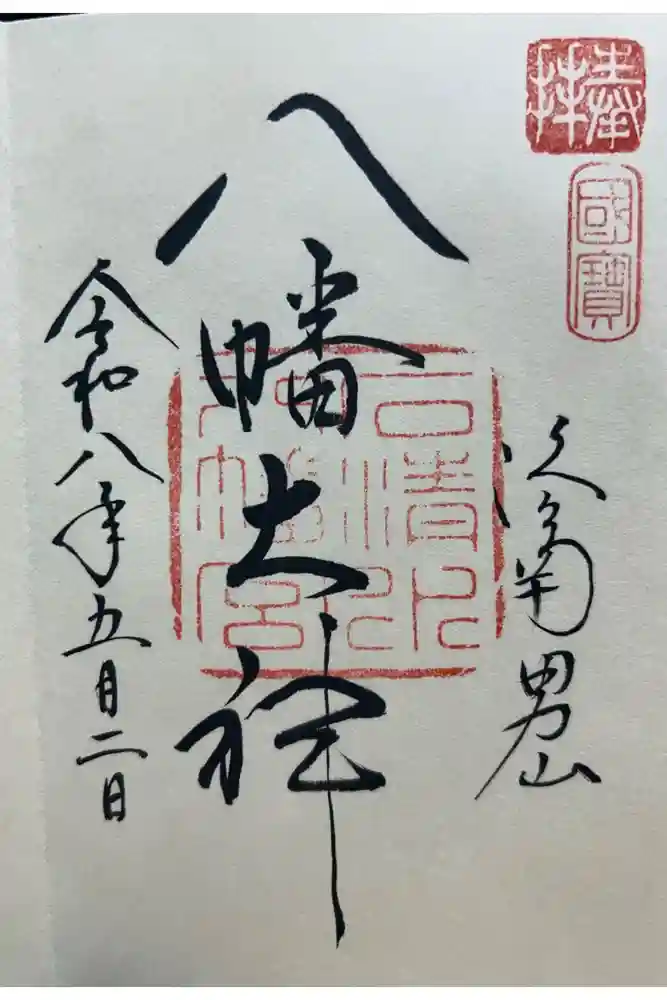 奉拜
國寶
洛南男山
八幡大神
石清水
八幡宮
令和八年五月二日